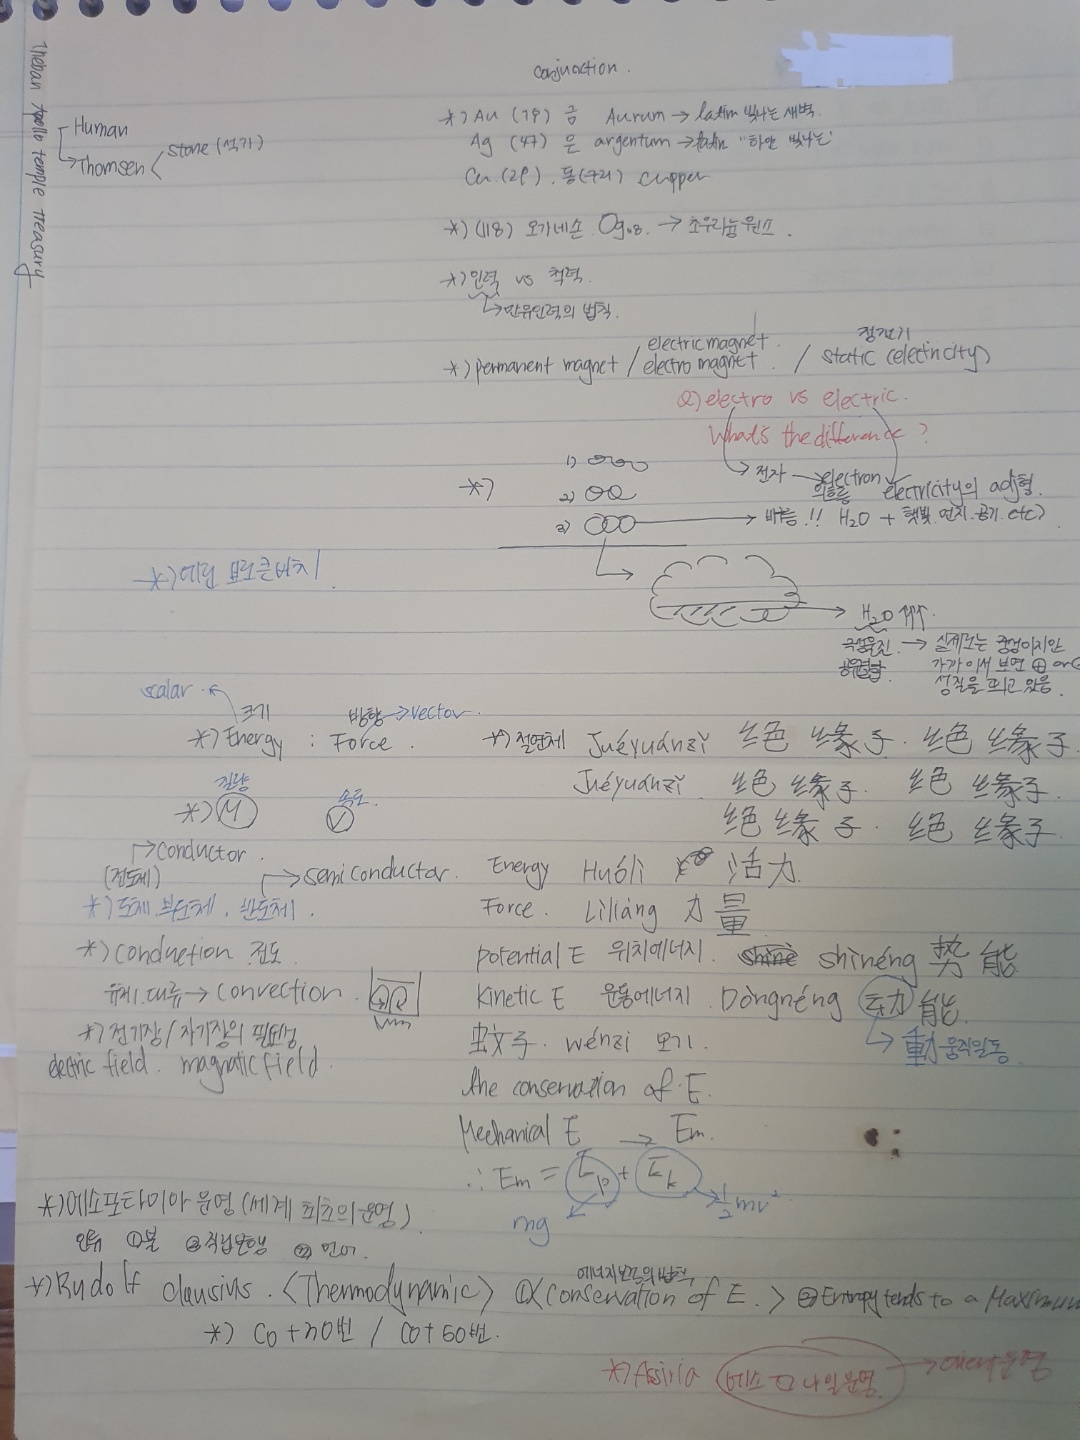 Theban Apollo temple treasury
conjunction.
Human
Thomsen < stone (석기)
*) Au (79) 금 Aurum → latin 빛나는 새벽.
Ag (47) 은 argentum → latin "하얀 빛나는"
Cu (29). 동(구리) cupper
*) (118) 오가네손 Og → 초우라늄 원소.
*) 인력 vs 척력.
→ 만유인력의 법칙.
electric magnet. 정전기
*) permanent magnet / electro magnet. / static (electricity)
Q) electro vs electric.
What's the difference?
→ 전자 → electron electricity의 adj형.
*)
1)
2)
3) → H2O + 햇빛. 먼지. 공기. etc)
→ H2O ↑↑↑.
→ 실제로는 중성이지만
공유결합 가까이서 보면 ⊕ or
성질을 띄고 있음.
scalar. 크기 방향 → vector.
*) Energy : Force.
질량 속도.
*) M V
→ conductor.
(전도체) → semiconductor.
*) 도체. 부도체. 반도체.
*) conduction 전도
유체. 대류 → convection.
*) 전기장 / 자기장의 필요성
electric field. magnetic field.
*) 절연체 Juéyuánzǐ 绝缘子. 绝缘子.
Juéyuánzǐ. 绝缘子. 绝缘子.
绝缘子. 绝缘子.
Energy Huólì 活力.
Force. Lìliàng 力量
potential E 위치에너지. shìnéng 势能
Kinetic E 운동에너지. Dòngnéng 动能.
→ 動 움직일 동
蚊子. wénzi 모기.
the conservation of E.
Mechanical E → Em.
∴ Em = Ep + Ek
mg 1/2 mv²
*) 메소포타미아 문명 (세계 최초의 문명)
인류 ① 불 ② 직립보행 ③ 언어.
에너지보존의 법칙
*) Rudolf clausius. <Thermodynamic> ① <Conservation of E.> ② Entropy tends to a Maximum
*) Co + 20번 / Co + 60번.
*) Assiria